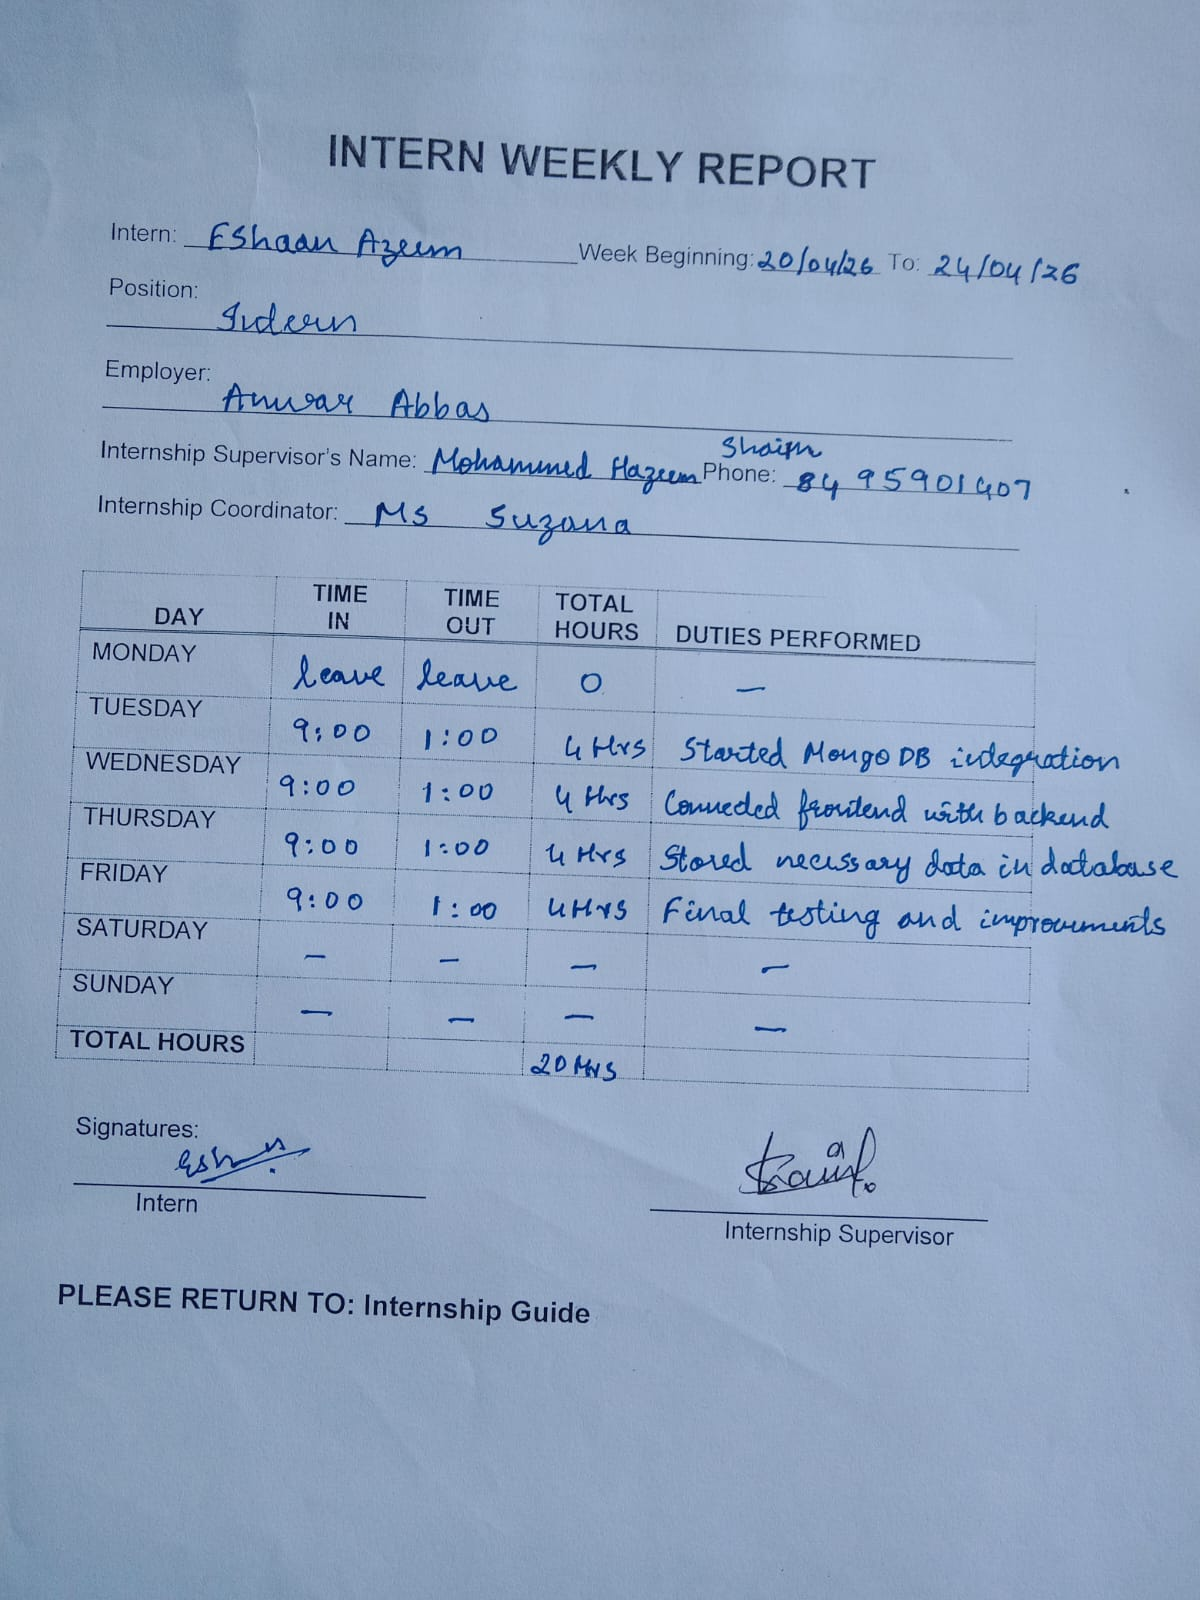 INTERN WEEKLY REPORT
Intern: Eshaan Azeem Week Beginning: 20/04/26 To: 24/04/26
Position: Intern
Employer: Anwar Abbas
Internship Supervisor's Name: Mohammed Hazeem Shaikh Phone: 84 95901407
Internship Coordinator: Ms Suzana
DAY TIME IN TIME OUT TOTAL HOURS DUTIES PERFORMED
MONDAY leave leave 0 —
TUESDAY 9:00 1:00 4 Hrs Started MongoDB integration
WEDNESDAY 9:00 1:00 4 Hrs Connected frontend with backend
THURSDAY 9:00 1:00 4 Hrs Stored necessary data in database
FRIDAY 9:00 1:00 4 Hrs Final testing and improvements
SATURDAY — — — —
SUNDAY — — — —
TOTAL HOURS 20 Hrs
Signatures:
Intern
Internship Supervisor
PLEASE RETURN TO: Internship Guide